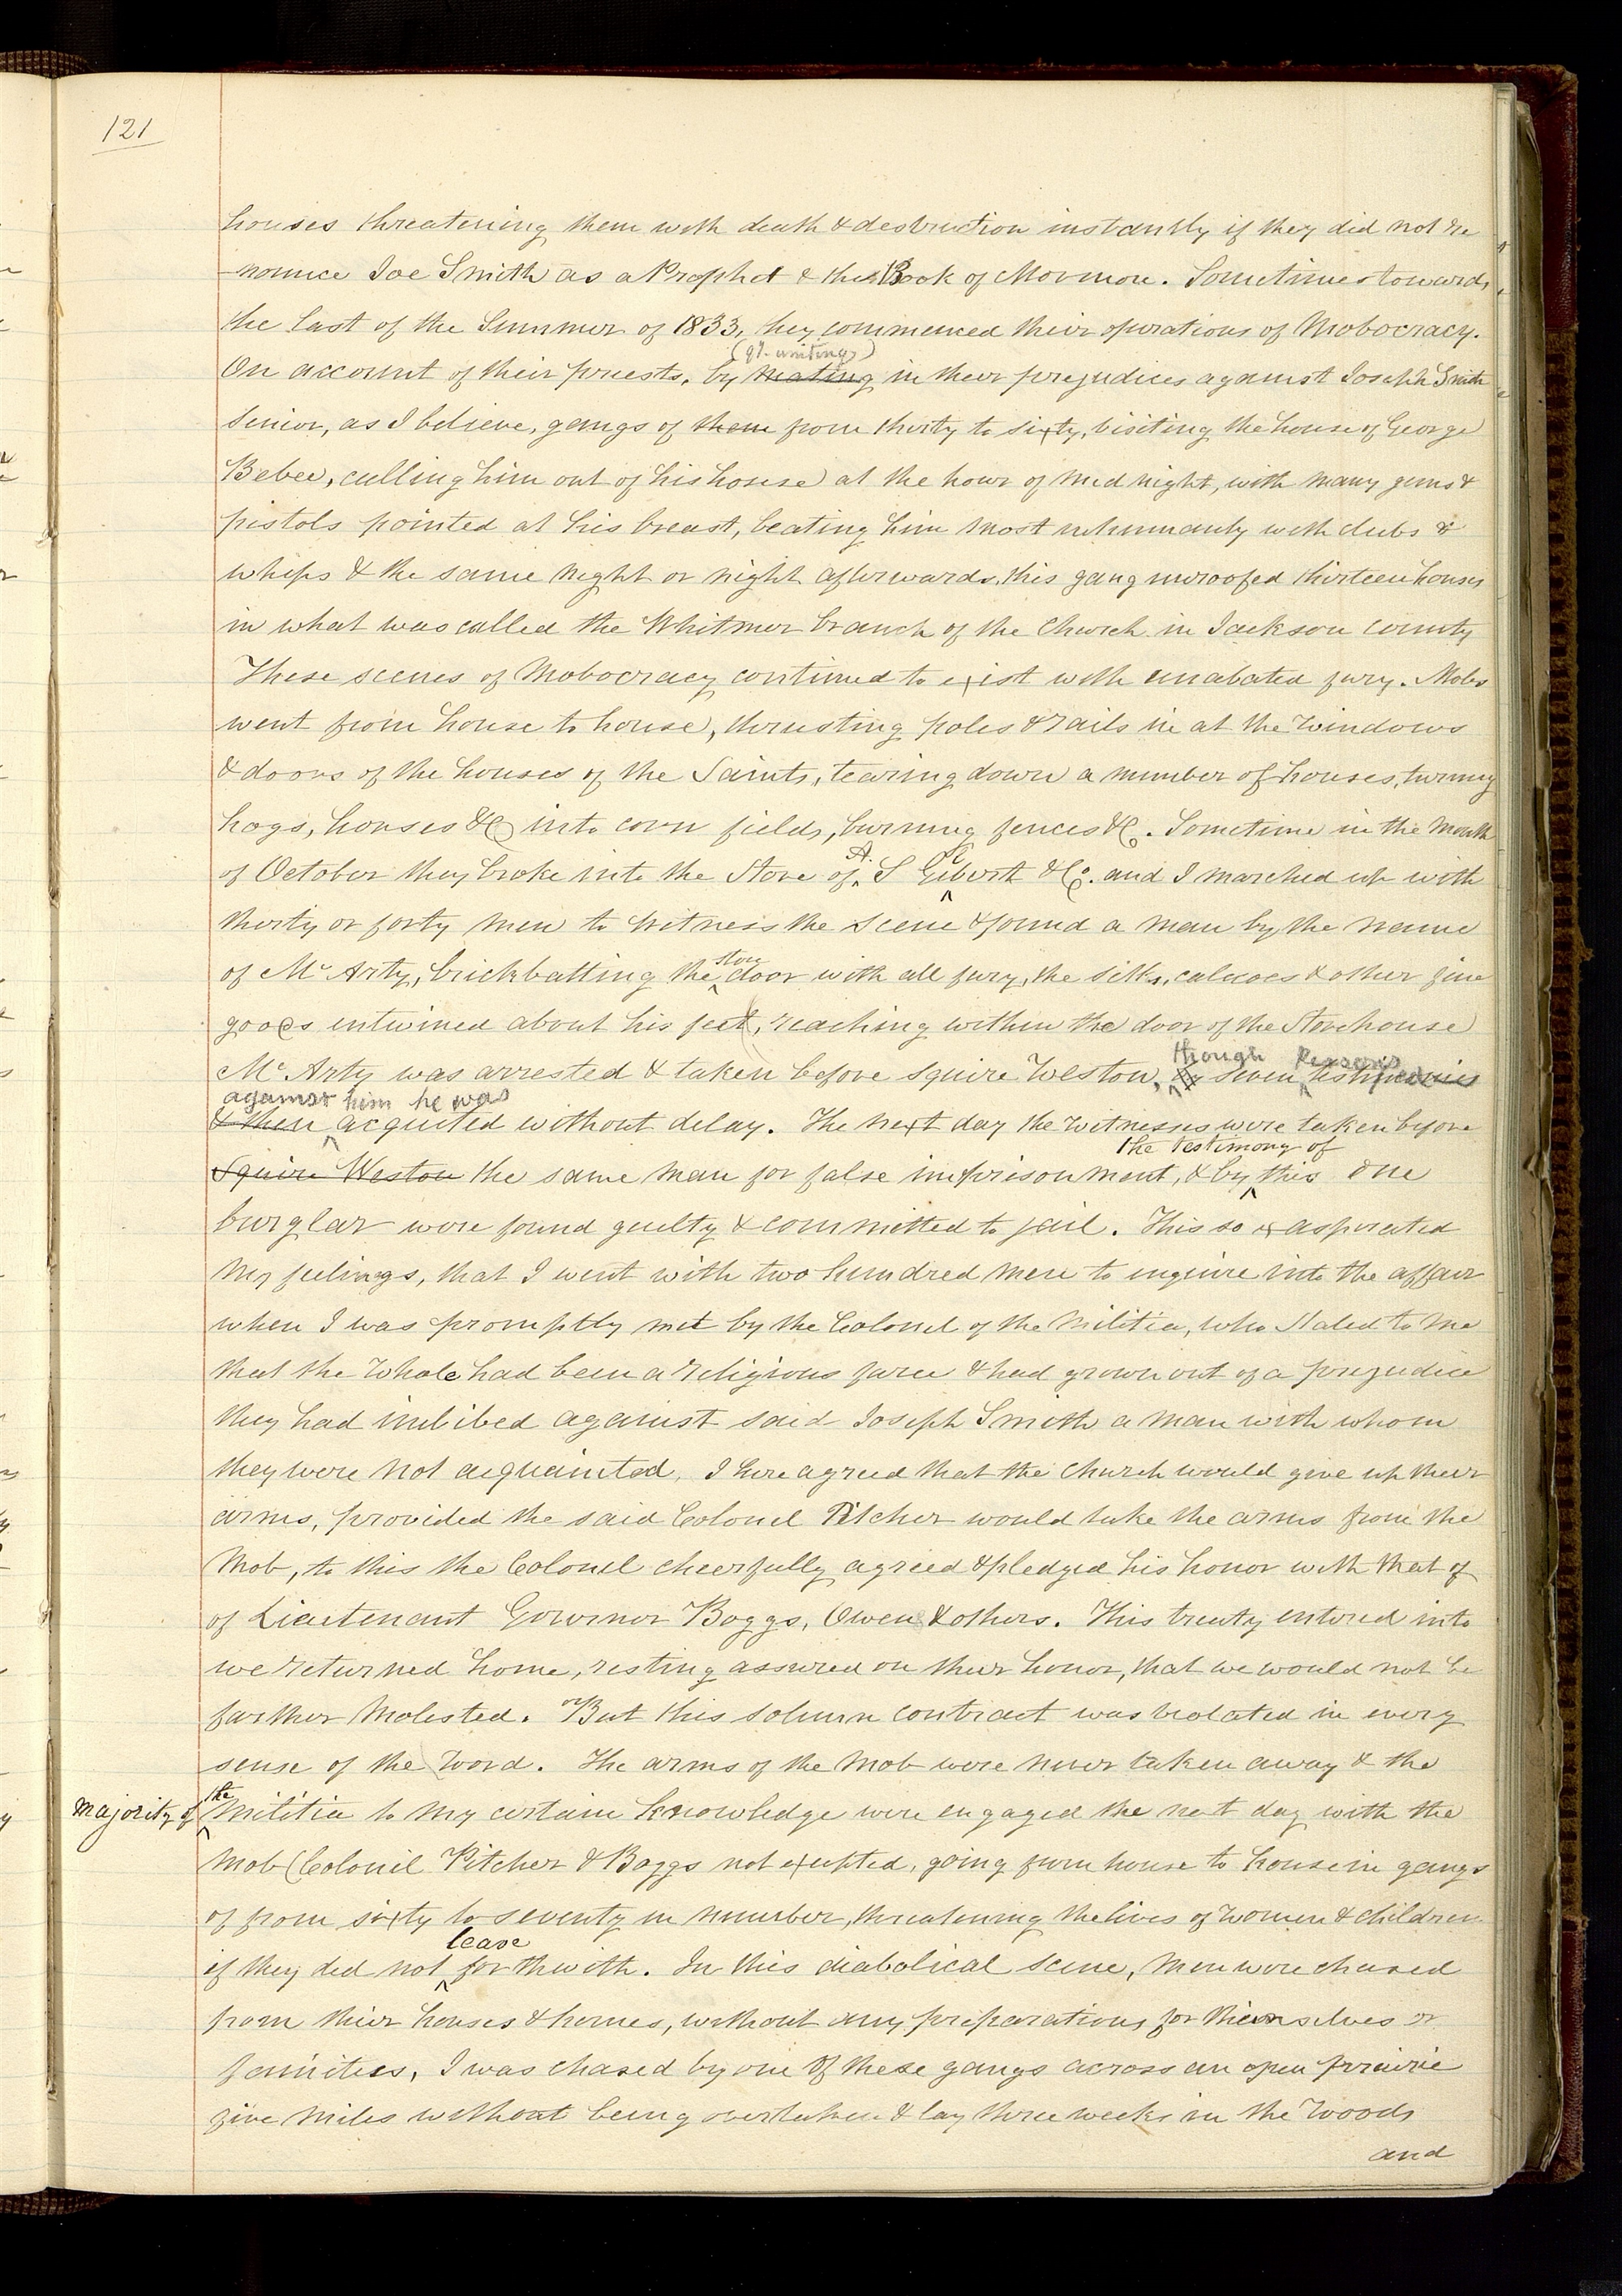 121
houses threatening them with death & destruction instantly if they did not re
-nounce Joe Smith as a Prophet & the Book of Mormon. Sometime towards
the last of the Summer of 1833, they commenced their operations of Mobocracy.
(qy. uniting)
On account of their priests, by mating in their prejudices against Joseph Smith
Senior, as I believe, gangs of them from thirty to sixty, visiting the house of George
Bebee, calling him out of his house at the hour of mid night, with many guns &
pistols pointed at his breast, beating him most inhumanly with clubs &
whips & the same night or night afterwards, this gang unroofed thirteen houses
in what was called the Whitmer branch of the Church in Jackson County
These scenes of Mobocracy continued to exist with unabated fury. Mobs
went from house to house, thrusting poles & rails in at the Windows
& doors of the houses of the Saints, tearing down a number of houses, turning
hogs, horses &c into corn fields, burning fences &c. Sometime in the Month
of October they broke into the Store of A. S Gilbert & Co. and I marched up with
thirty or forty men to witness the scene & found a man by the name
of McArty, brickbatting the store door with all fury, the silks, calicoes & other fine
goods entwined about his feet, reaching within the door of the Storehouse
though Persons
McArty was arrested & taken before Squire Weston, by seven testified
against him he was
& then acquited without delay. The next day the witnesses were taken before
the testimony of
Squire Weston the same man for false imprisonment, & by this one
burglar were found guilty & committed to jail. This so exasperated
my feelings, that I went with two hundred men to enquire into the affair
when I was promptly met by the Colonel of the Militia, who stated to me
that the whole had been a religious farce & had grown out of a prejudice
they had imbibed against said Joseph Smith a man with whom
they were not acquainted, I here agreed that the church would give up their
arms, provided the said Colonel Pitcher would take the arms from the
Mob, to this the Colonel cheerfully agreed & pledged his honor with that of
of Lieutenant Governor Boggs, Owen & others. This treaty entered into
we returned home, resting assured on their honor, that we would not be
farther molested. But this solemn contract was violated in every
sense of the word. The arms of the mob were never taken away & the
majority of the Militia to my certain knowledge were engaged the next day with the
mob (Colonel Pitcher & Boggs not excepted, going from house to house in gangs
of from sixty to seventy in number, threatening the lives of women & children
leave
if they did not forthwith. In this diabolical scene, men were chased
from their houses & homes, without any preparations for themselves or
families, I was chased by one of these gangs across an open prairie
five miles without being overtaken & lay three weeks in the Woods
and